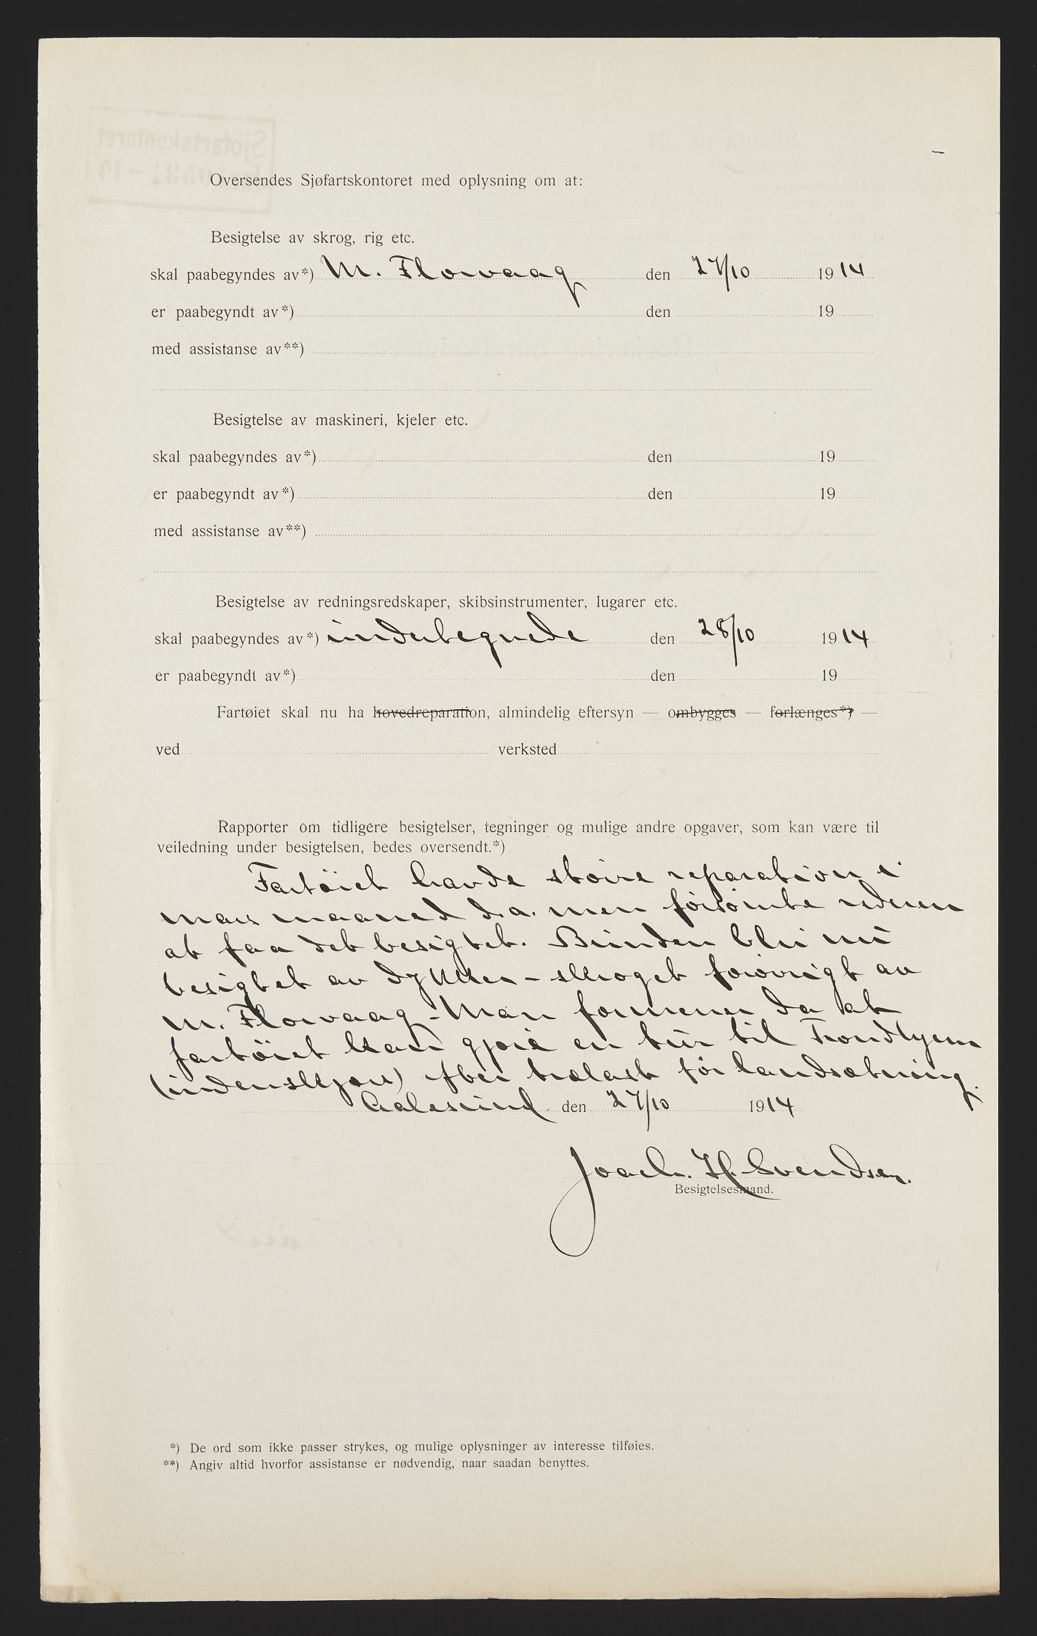 Oversendes Sjøfartskontoret med oplysning om at:
Besigtelse av skrog, rig etc.
skal paabegyndes av*) M. Flowaag den 27/10 1914
er paabegyndt av*) den 19
med assistanse av**)
Besigtelse av maskineri, kjeler etc.
skal paabegyndes av*) den 19
er paabegyndt av*) den 19
med assistanse av**)
Besigtelse av redningsredskaper, skibsinstrumenter, lugarer etc.
skal paabegyndes av*) undertegnede den 28/10 1914
er paabegyndt av*) den 19
Fartøiet skal nu ha hovedreparation, almindelig eftersyn — ombygges — forlænges*) —
ved verksted
Rapporter om tidligere besigtelser, tegninger og mulige andre opgaver, som kan være til
veiledning under besigtelsen, bedes oversendt.*)
Fartöiet havde störe reparation i
mars maaned d.a. men försömte rederen
at faa det besigtet. Bunden blir nu
besigtet av dykker - skroget forövrigt av
M. Flowaag - Man formener da at
fartöiet kan gjöre en tur til Trondhjem
(indenskjærs) efter trælast för landsætning.
Aalesund den 27/10 1914
Joach. H. Svendsen.
Besigtelsesmand.
*) De ord som ikke passer strykes, og mulige oplysninger av interesse tilføies.
**) Angiv altid hvorfor assistanse er nødvendig, naar saadan benyttes.